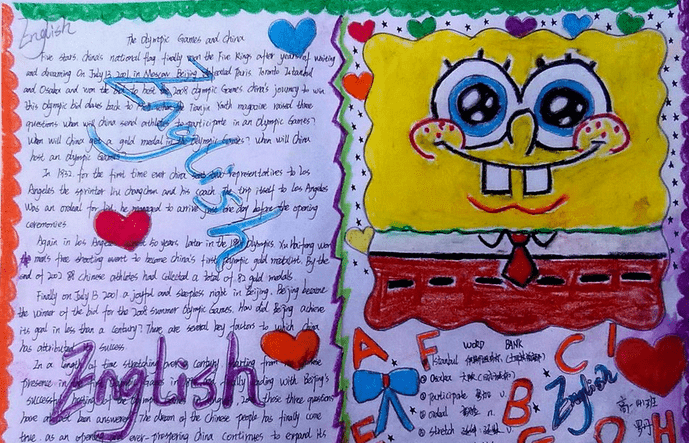 English
The Olympic Games and China
Five stars. China's national flag finally won the Five Rings after years of waiting
and dreaming On July 13 2001 in Moscow Beijing defeated Paris Toronto Istanbul
and Osaka and won the bid to host the 2008 Olympic Games China's journey to win
this olympic bid dates back to Tianjin Youth magazine raised three
questions when will China send athletes to participate in an Olympic Games?
When will China get a gold medal in the Olympic Games? when will China
host an Olympic Games
In 1932 for the first time ever China sent representatives to Los
Angeles the sprinter Liu changchun and his coach The trip itself to Los Angeles
was an ordeal for but he managed to arrive just one day before the opening
ceremonies
Again in Los Angeles years later in the Olympics. Xu Hai-fong won
men's free shooting event to become China's first olympic gold medalist. By the
end of 2002 Chinese athletes had collected a total of gold medals
Finally on July 13 2001 a joyful and sleepless night in Beijing. Beijing became
the winner of the bid for the 2008 summer Olympic Games. How did Beijing achieve
its goal in less than a century? There are several key factors to which China
has attributed success.
In a length of time stretching over century starting from
presence in finally ending with Beijing's
success hosting of the Olympic those three questions
have at last been answered. The dream of the Chinese people has finally come
true. as an opening and ever-prospering China continues to expand its
English
English
A F C I
WORD BANK
Istanbul
Osaka
participate v.
ordeal n.
stretch
B
English
E G H